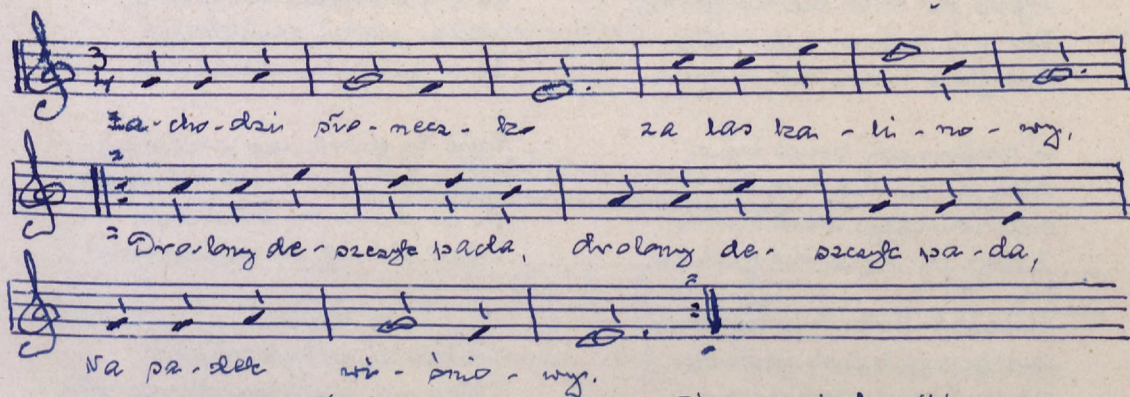 3
4
Za-cho-dzi sło-necz-ko za las ka-li-no-wy,
Drobny de-szczyk pada, drobny de-szczyk pa-da,
Na sa-dek wi-śnio-wy.